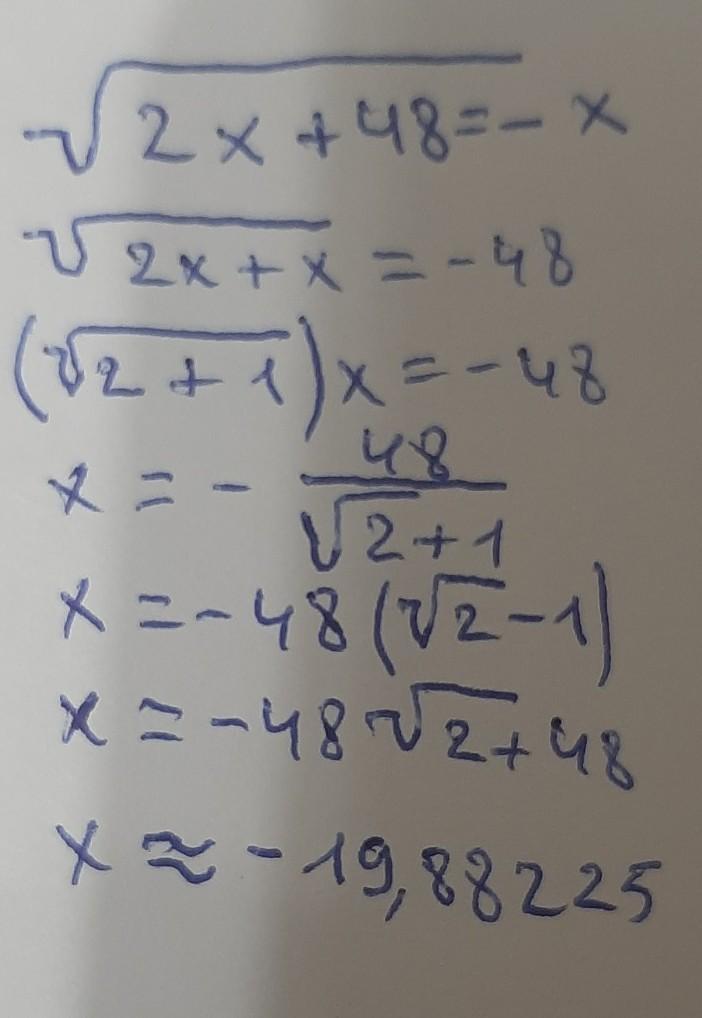 √(2x + 48) = - x
√(2x + x) = - 48
(√(2 + 1)) x = - 48
x = - 48 / (√2 + 1)
x = - 48 (√2 - 1)
x = - 48 √2 + 48
x ≈ - 19,88225